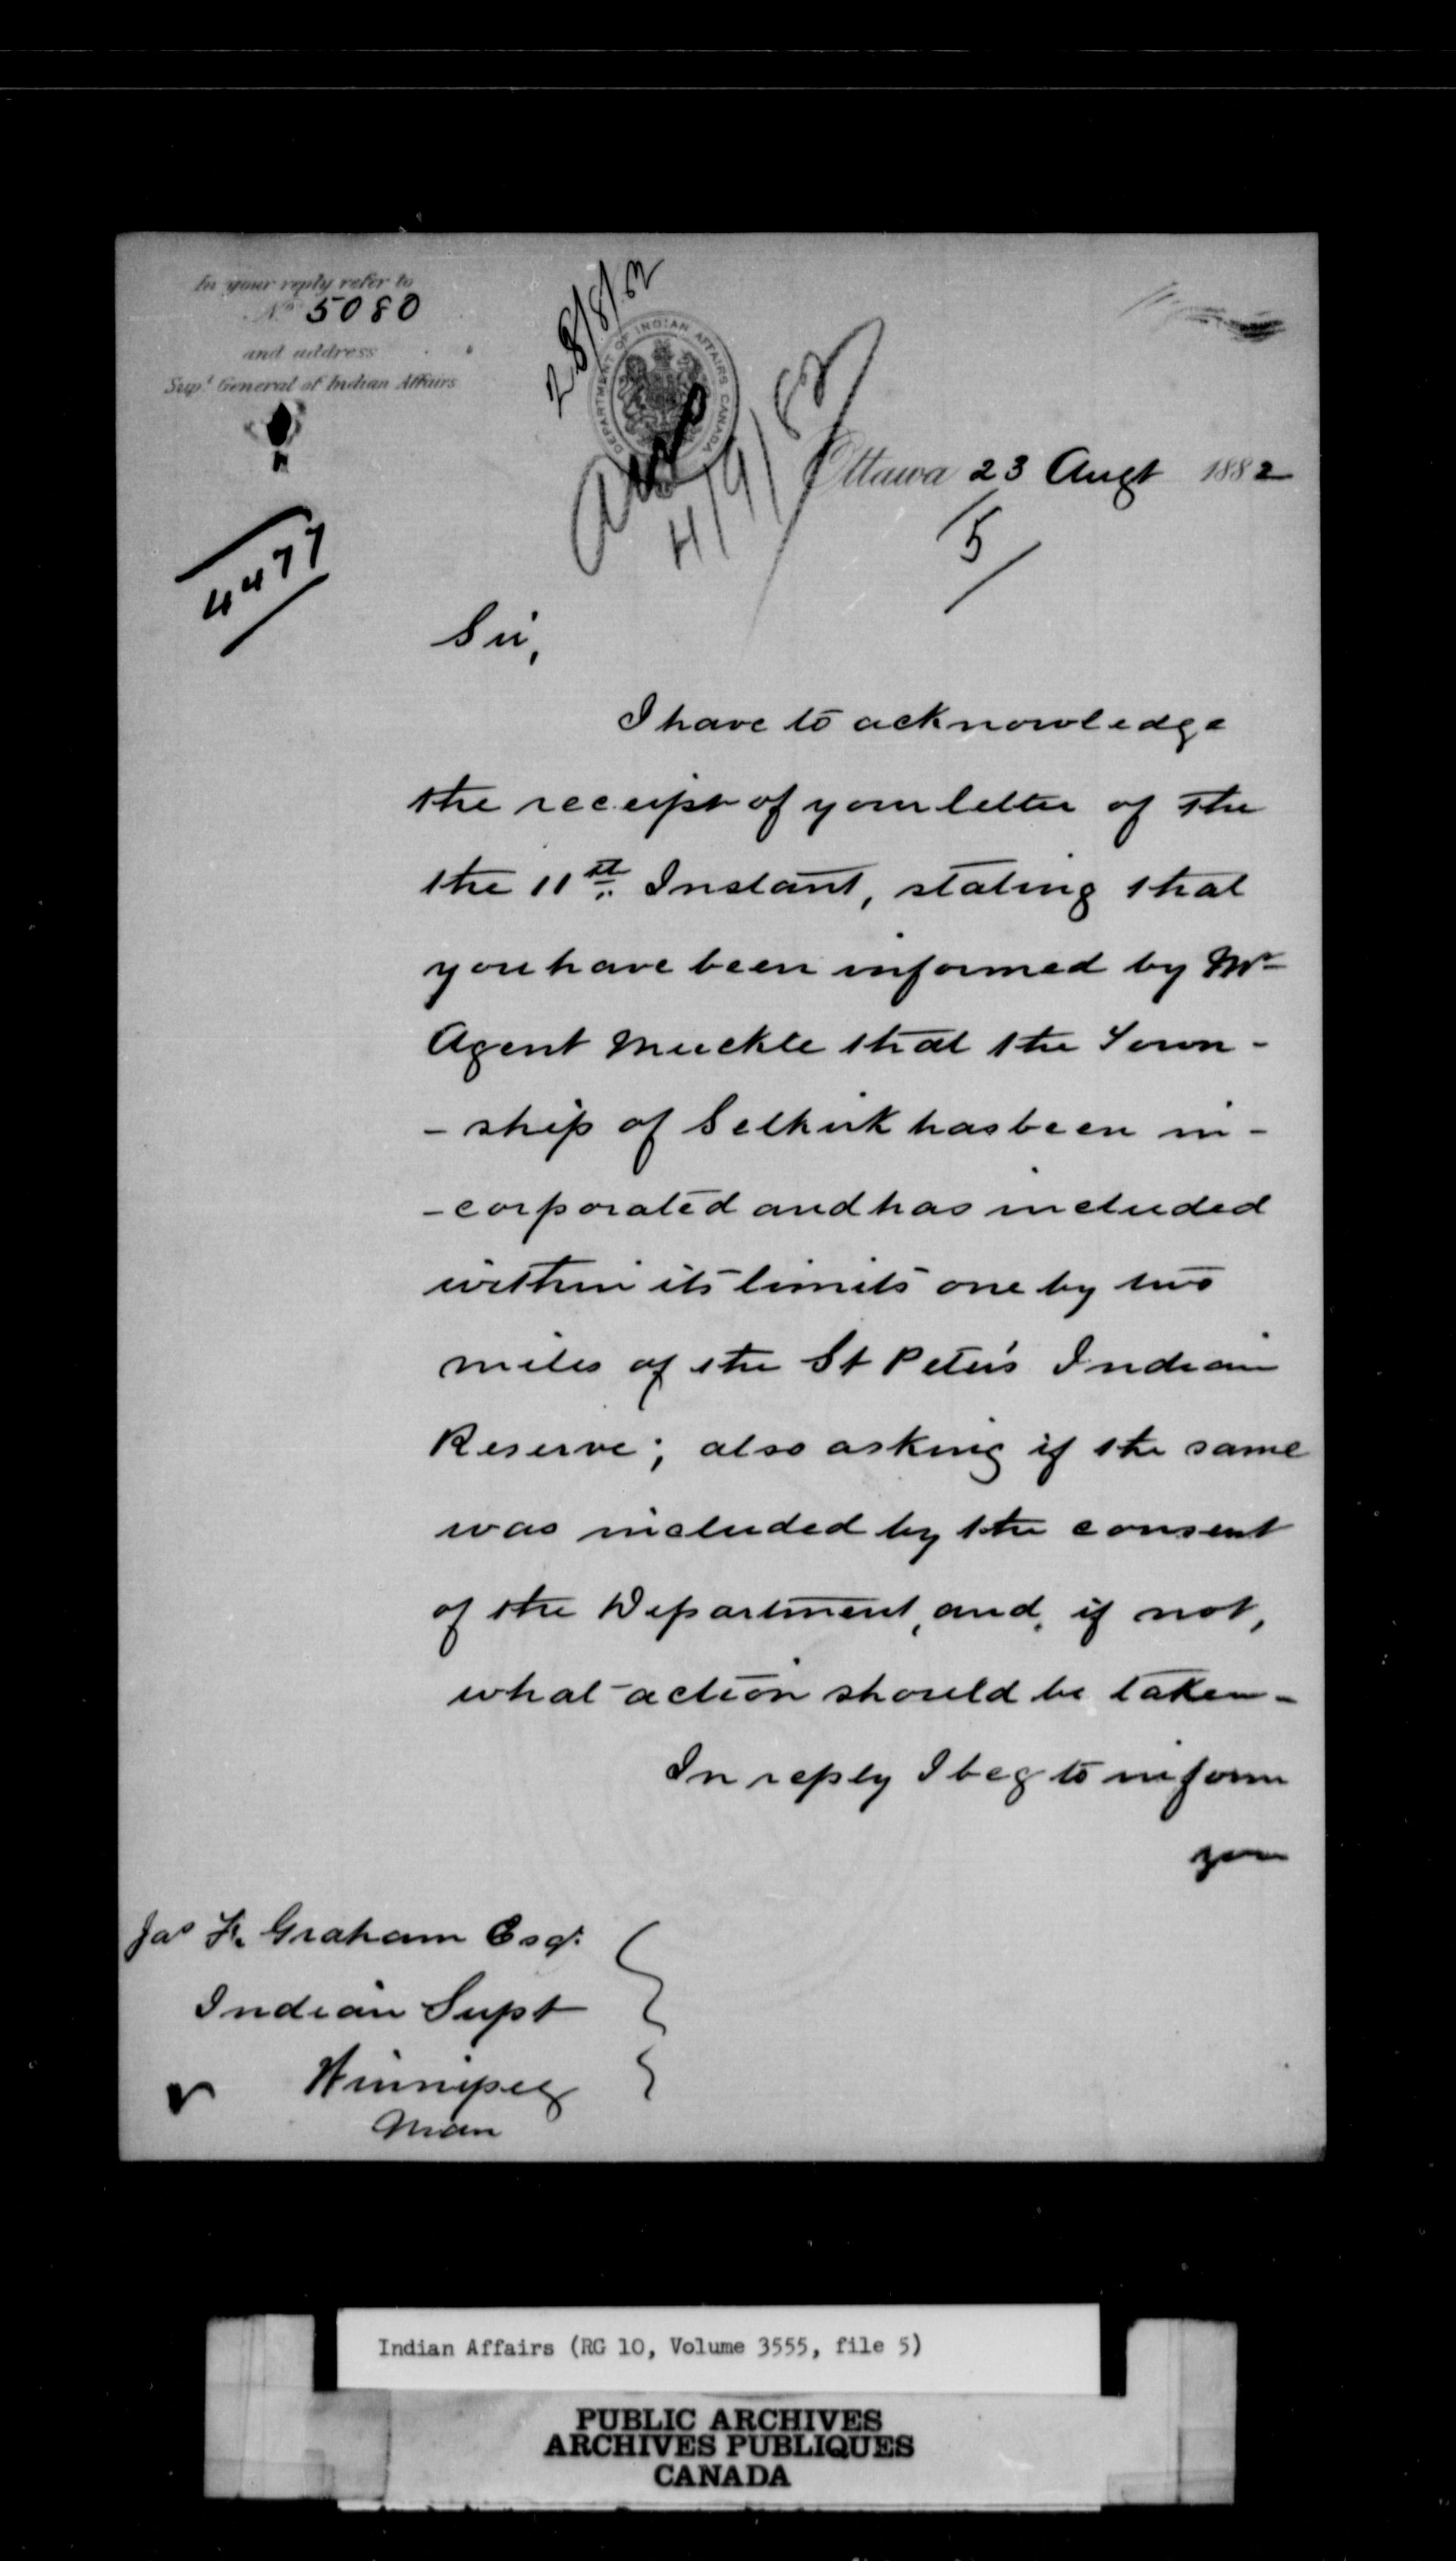 In your reply refer to
No. 5080
and address
Supt. General of Indian Affairs
28/8/82
DEPARTMENT OF INDIAN AFFAIRS CANADA
4/9/82
Ottawa 23 Augt 1882
5/
4477
Sir,
I have to acknowledge
the receipt of your letter of the
the 11th. Instant, stating that
you have been informed by Mr
Agent Muckle that the Town-
- ship of Selkirk has been in-
- corporated and has included
within its limits one by two
miles of the St Peter's Indian
Reserve; also asking if the same
was included by the consent
of the Department, and, if not,
what action should be taken -
In reply I beg to inform
you
Jas F. Graham Esq.
Indian Supt
Winnipeg
Man
Indian Affairs (RG 10, Volume 3555, file 5)
PUBLIC ARCHIVES
ARCHIVES PUBLIQUES
CANADA